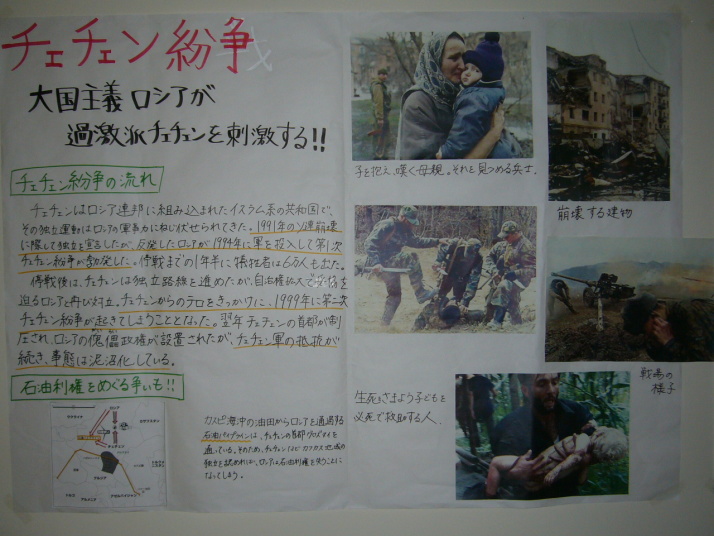 チェチェン紛争
大国主義ロシアが
過激派チェチェンを刺激する!!
チェチェン紛争の流れ
チェチェンはロシア連邦に組み込まれたイスラム系の共和国で、
その独立運動はロシアの軍事力にねじ伏せられてきた。1991年のソ連崩壊
に際して独立を宣言したが、反発したロシアが1994年に軍を投入して第1次
チェチェン紛争が勃発した。停戦までの1年半に犠牲者は6万人も出た。
停戦後は、チェチェンは独立路線を進めたが、自治権拡大で
迫るロシアと再び対立。チェチェンからのテロをきっかけに、1999年に第二次
チェチェン紛争が起きてしまうこととなった。翌年チェチェンの首都が制
圧され、ロシアの傀儡政権が設置されたが、チェチェン軍の抵抗が
続き、事態は泥沼化している。
石油利権をめぐる争いも!!
カスピ海沖の油田からロシアを通過する
石油パイプラインは、チェチェンの首都グロズヌイを
通っている。そのため、チェチェンなどカフカス地域の
独立を認めれば、ロシアは石油利権を失うことに
なってしまう。
子を抱え、嘆く母親。それを見つめる兵士.
崩壊する建物
戦場の
様子
生死をさまよう子どもを
必死で救助する人.